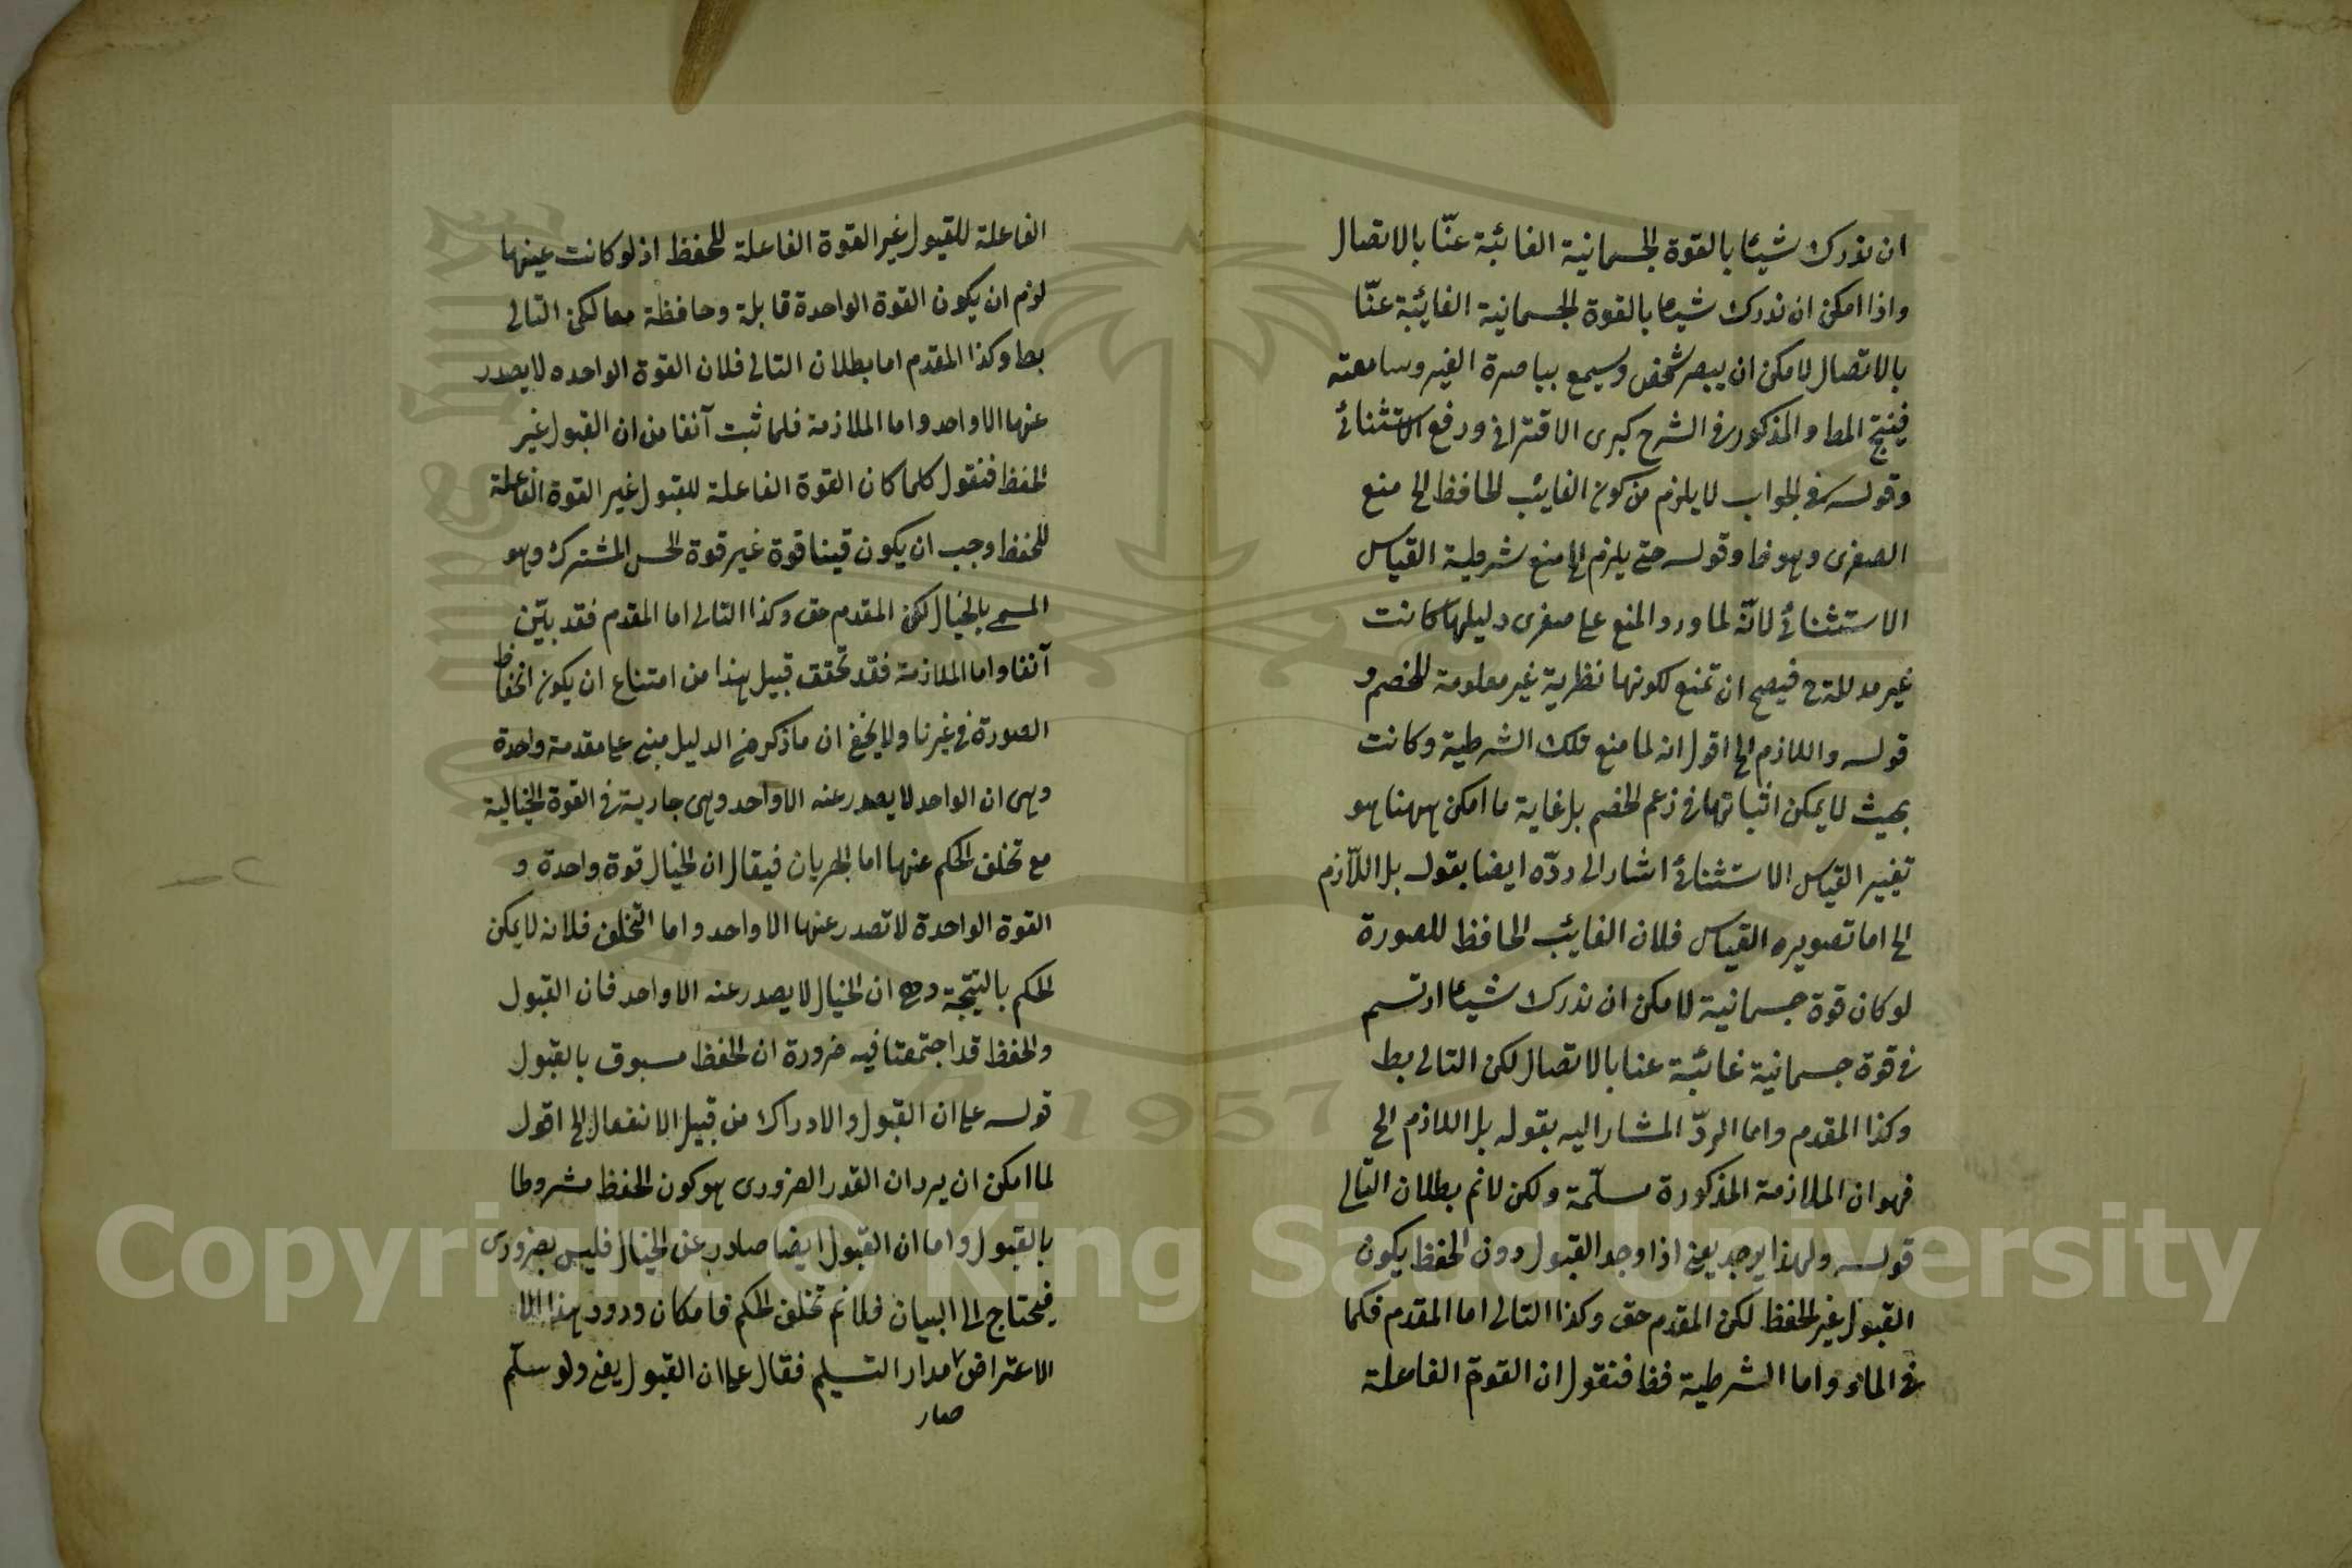 ان ندرك شيئا بالقوة الجسمانية الغائبة عنّا بالاتصال
واذا امكن ان ندرك شيئا بالقوة الجسمانية الغايئبة عنّا
بالاتصال لامكن ان يبصر شخص وسيمع بباصرة الغير وسامعته
فينتج المط والمذكور فى الشرح كبرى الاقترانى ورفع الاستثنائى
وقوله فى الجواب لا يلزم من كون الغايئب الحافظ الخ منع
الصغرى وهو ظ وقوله حتى يلزم الخ منع شرطية القياس
الاستثنائى لانّه لما ورد المنع على صغرى دليلها كانت
غير مدللة ح فيصح ان تمنع لكونها نظرية غير معلومة للخصم و
قوله واللازم الخ اقول انه لما منع تلك الشرطية وكانت
بحيث لا يمكن اثباتها فى زعم الخصم بل غاية ما امكن ههنا هو
تغيير القياس الاستثنائى اشار الى ردّه ايضا بقوله بل اللّازم
الخ اما تصويره القياس فلان الغايئب الحافظ للصورة
لو كان قوة جسمانية لامكن ان ندرك شيئا ارتسم
فى قوة جسمانية غائبة عنا بالاتصال لكن التالى بط
وكذا المقدم واما الردّ المشار اليه بقوله بل اللازم الخ
فهو ان الملازمة المذكورة مسلّمة ولكن لا نم بطلان التالى
قوله ولهذا يوجد يعنى اذا وجد القبول دون الحفظ يكون
القبول غير الحفظ لكن المقدم حق وكذا التالى اما المقدم فكما
فى الماء واما الشرطية فظ فنقول ان القوة الفاعلة
الفاعلة للقبول غير القوة الفاعلة للحفظ اذ لو كانت عينها
لزم ان يكون القوة الواحدة قابلة وحافظة معا لكن التالى
بط وكذا المقدم اما بطلان التالى فلان القوة الواحده لا يصدر
عنها الا واحد واما الملازمة فلما ثبت آنفا من ان القبول غير
الحفظ فنقول كلما كان القوة الفاعلة للقبول غير القوة الفاعلة
للحفظ وجب ان يكون فينا قوة غير قوة الحس المشترك وهو
المسمى بالخيال لكن المقدم حق وكذا التالى اما المقدم فقد بيّن
آنفا واما الملازمة فقد تحقق قبيل هذا من امتناع ان يكون انحفاظ
الصورة فى غيرنا ولا يخفى ان ما ذكر فى الدليل مبنى على مقدمة واحدة
وهى ان الواحد لا يصدر عنه الا واحد وهى جارية فى القوة الخيالية
مع تخلف الحكم عنها اما الجريان فيقال ان الخيال قوة واحدة و
القوة الواحدة لا تصدر عنها الا واحد واما التخلف فلانه لا يمكن
الحكم بالنتيجة وهى ان الخيال لا يصدر عنه الا واحد فان القبول
والحفظ قد اجتمعتا فيه ضرورة ان الحفظ مسبوق بالقبول
قوله على ان القبول والادراك من قبيل الانفعال الخ اقول
لما امكن ان يرد ان القدر الضرورى هو كون الحفظ مشروطا
بالقبول واما ان القبول ايضا صادر عن الخيال فليس بضرورى
فيحتاج الى البيان فلا نم تخلف الحكم فامكان ورود هذا
الاعتراض مدار التسليم فقال على ان القبول يعنى ولو سلّم
صار